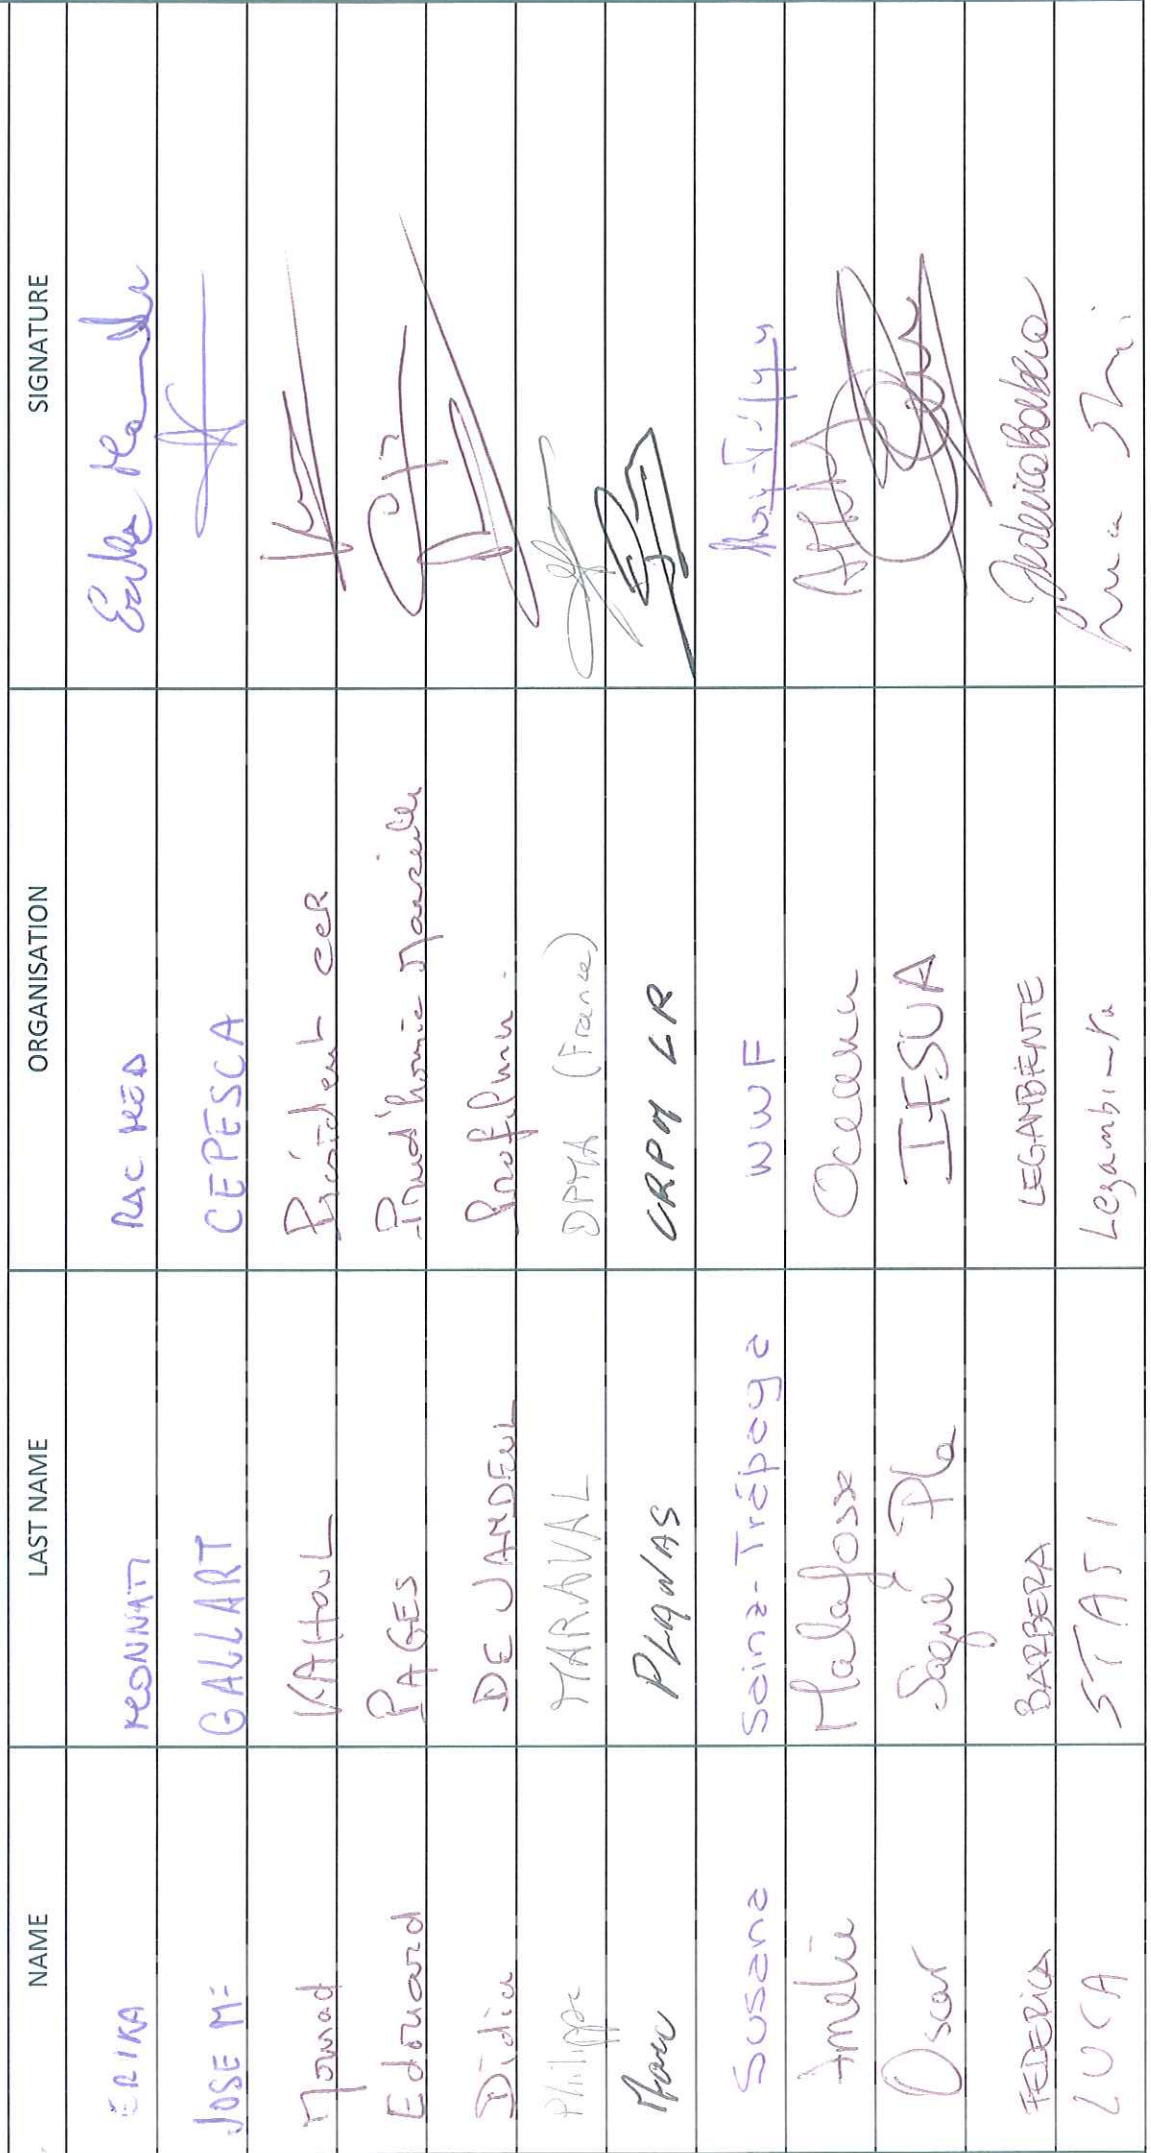 NAME LAST NAME ORGANISATION SIGNATURE
ERIKA MONNATI RAC MED
JOSE Mª GALLART CEPESCA
Mourad KAHOUL Président CER
Edouard PAGES Prud'homie Marseille
Didier DE JANDEUL
Philippe MARAVAL DPMA (France)
Marc PLANAS CRPM LR
Susana Sainz-Trápaga WWF
Amélie Malafosse Oceana
Oscar Sagué Pla IFSUA
FEDERICA BARBERA LEGAMBIENTE Federica Barbera
LUCA STASI Legambiente Luca